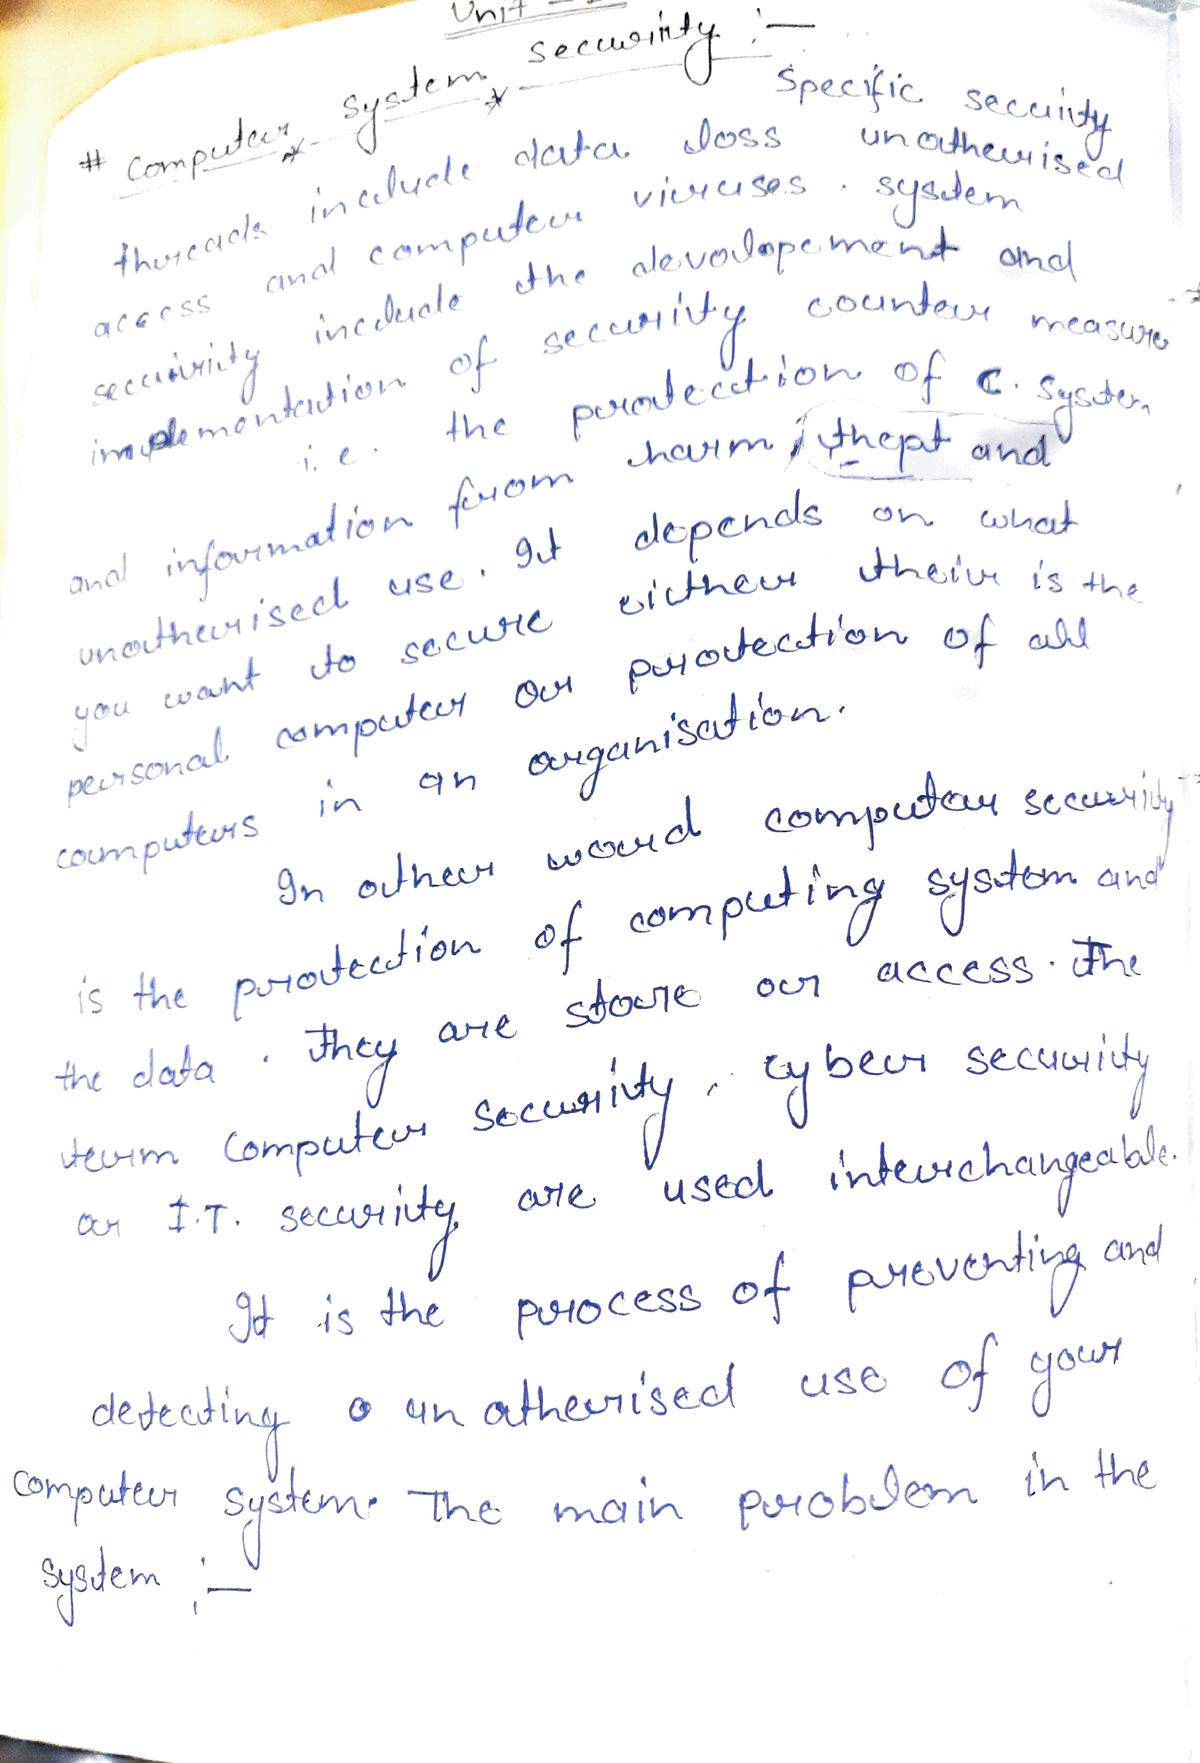 Unit -
# Computer system security :-
Specific security
threads include data loss unatherised
access and computer viruses. system
security include the devolopement and
implementation of security counter measure
i.e. the protection of C. System
and information from harm, thept and
unatherised use. It depends on what
you want to secure either their is the
personal computer or protection of all
coumputers in an organisation.
In other word computer security
is the protection of computing system and
the data. They are store or access. The
term Computer Security, cyber security
or I.T. security are used interchangeable.
It is the process of preventing and
detecting unatherised use of your
computer system. The main problem in the
system :-